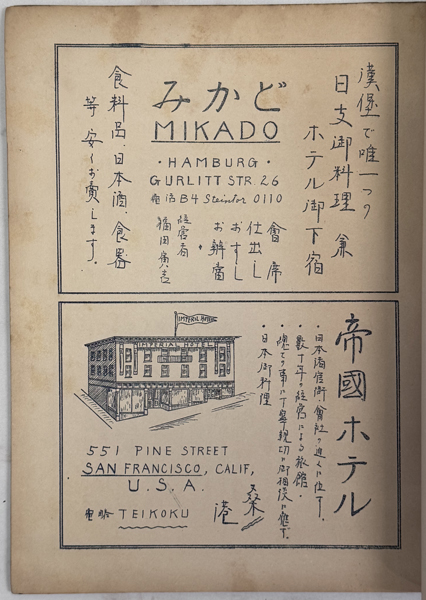 漢堡で唯一つの
日支御料理 兼
ホテル御下宿
みかど
MIKADO
・HAMBURG・
GURLITT STR. 26
電話 B4 Steintor 0110
會席
仕出し
おすし
お辨當
経営者
食料品、日本酒、食器
等 安くお賣します。
帝國ホテル
・日本商店街、會社の近くに位す。
・数十年の経営による旅館。
・總ての事に丁寧親切に御相談に應ず。
・日本御料理
IMPERIAL HOTEL
551 PINE STREET
SAN FRANCISCO, CALIF,
U.S.A.
電略 TEIKOKU
桑港